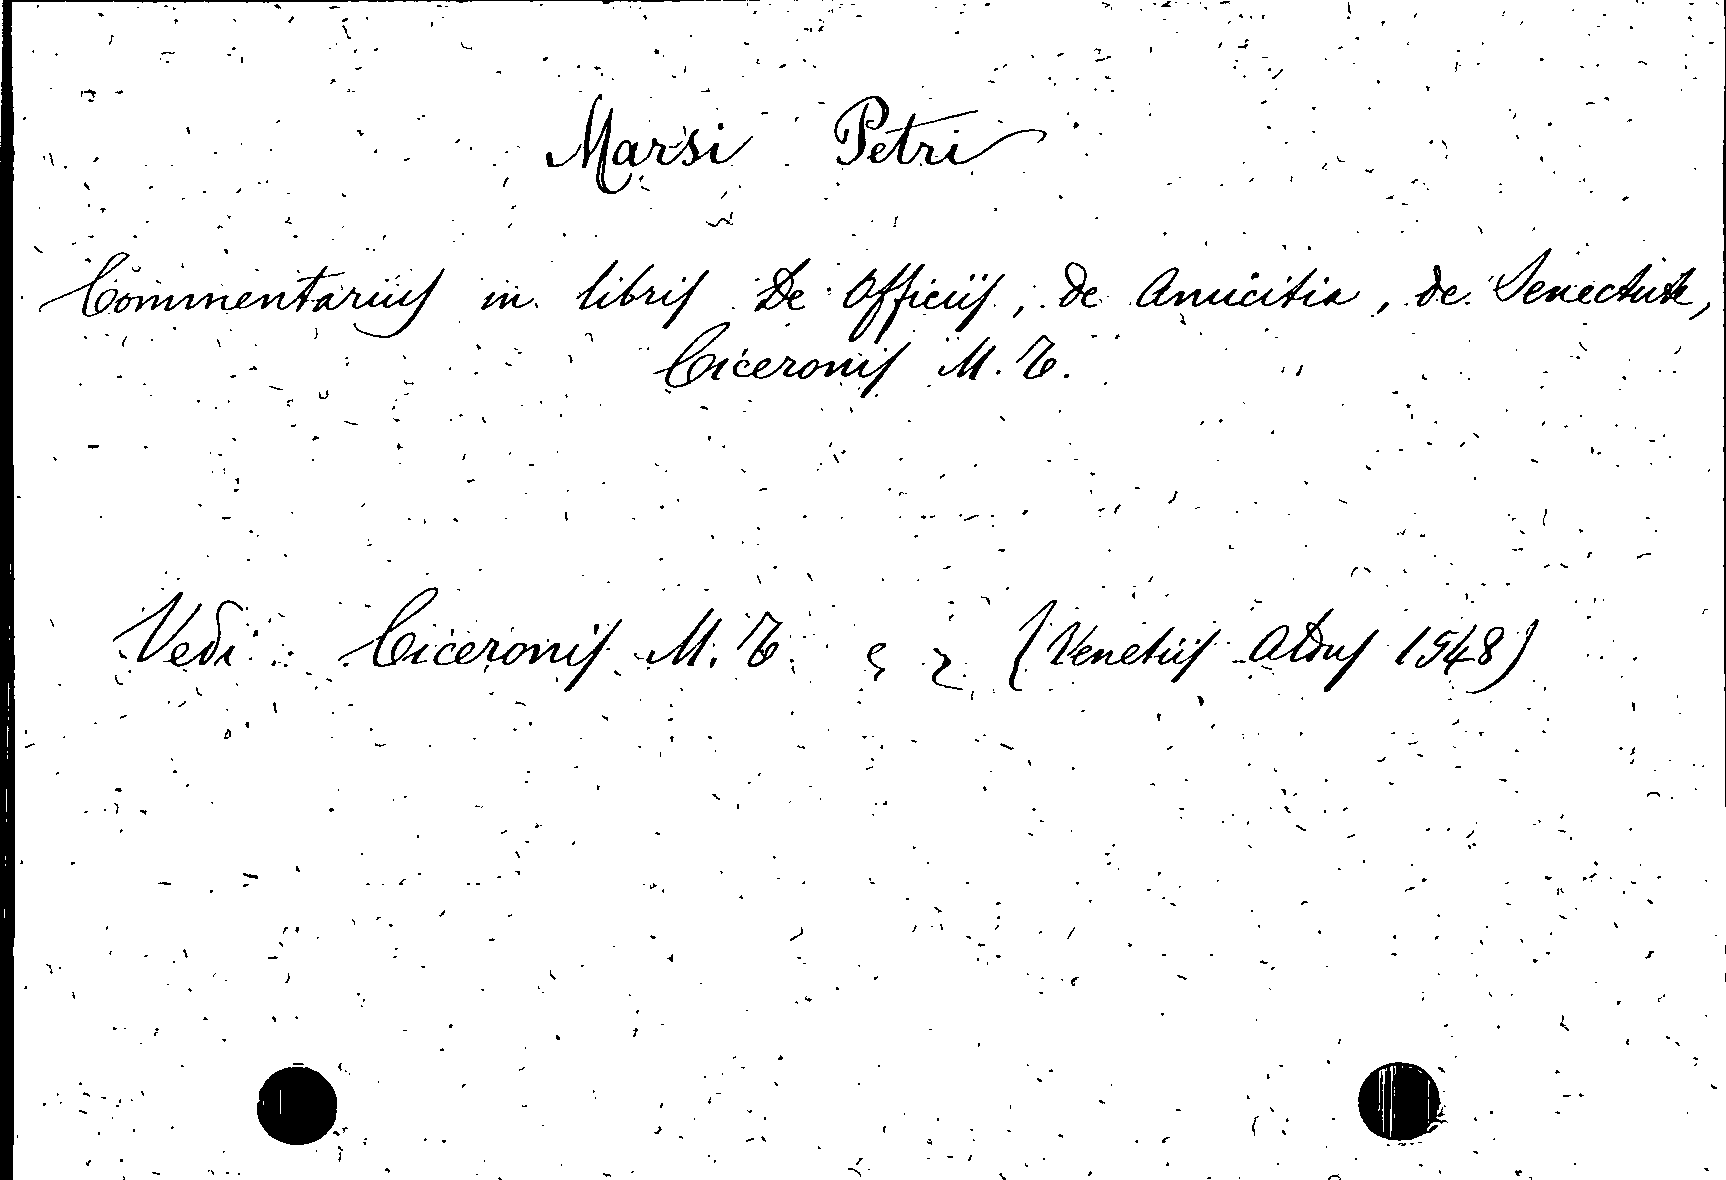 Marsi Petri
Commentarius in libris De Officiis, de Amicitia, de Senectute,
Ciceronis M. T.
Vedi: Ciceronis M. T. (Venetiis Aldus 1548)